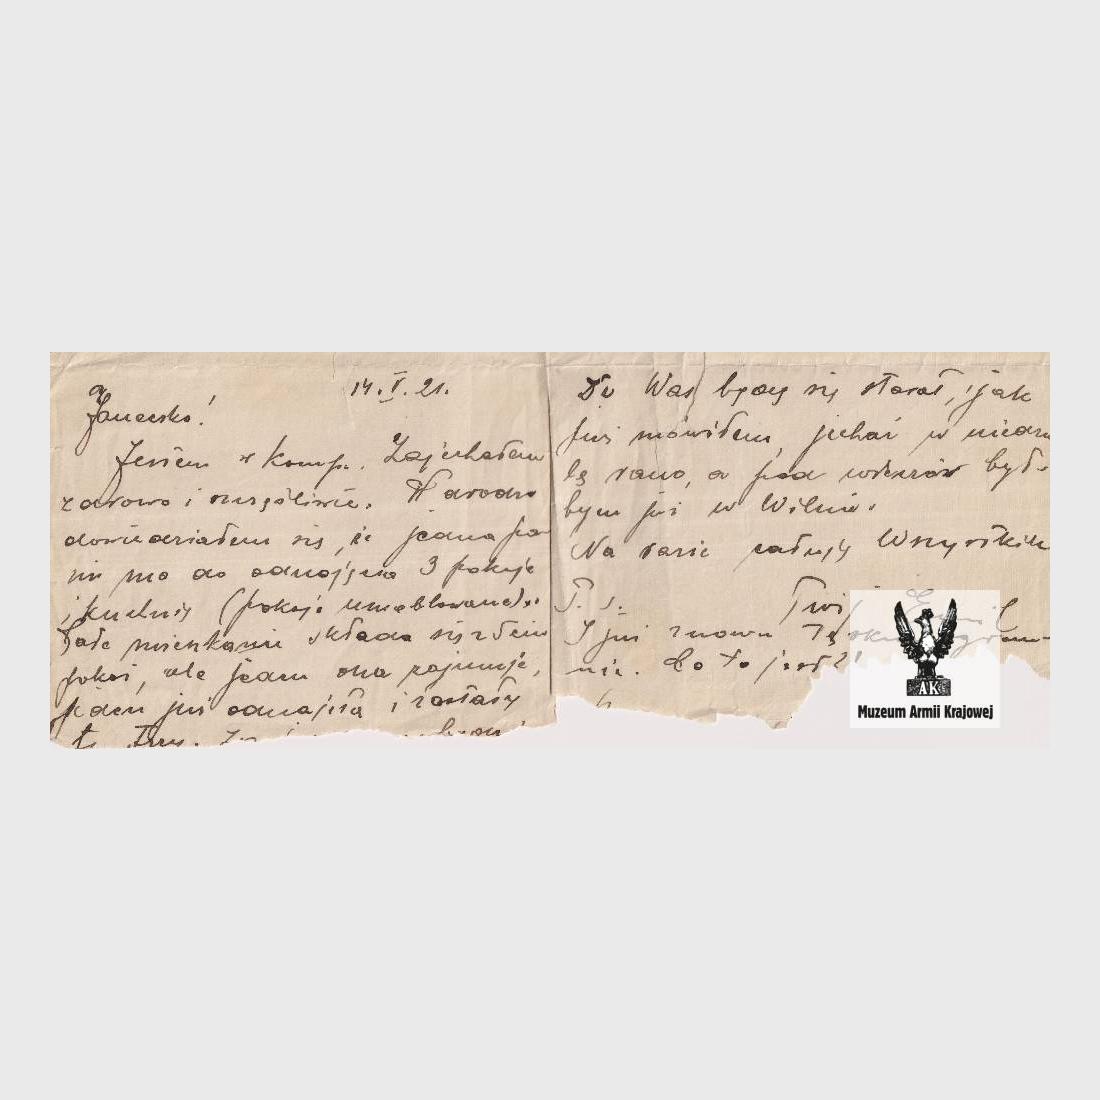 14.V.21.
Janeczko!
Jestem w komp. Zajechałem
zdrowo i szczęśliwie.
dowiedziałem się, że jedna pa-
ni ma do odnajęcia 3 pokoje
i kuchnię (pokoje umeblowane).
Całe mieszkanie składa się z 5ciu
pokoi, ale jeden ona zajmuje,
jeden już odnajęła i zostały
te trzy.
Do Was będę się starał, jak
już mówiłem, jechać w niedzie-
lę rano, a pod wieczór był-
bym już w Wilnie.
Na razie całuję Wszystkich
P. S. Twój
I już znowu
nie. Co to jest?!
AK
Muzeum Armii Krajowej